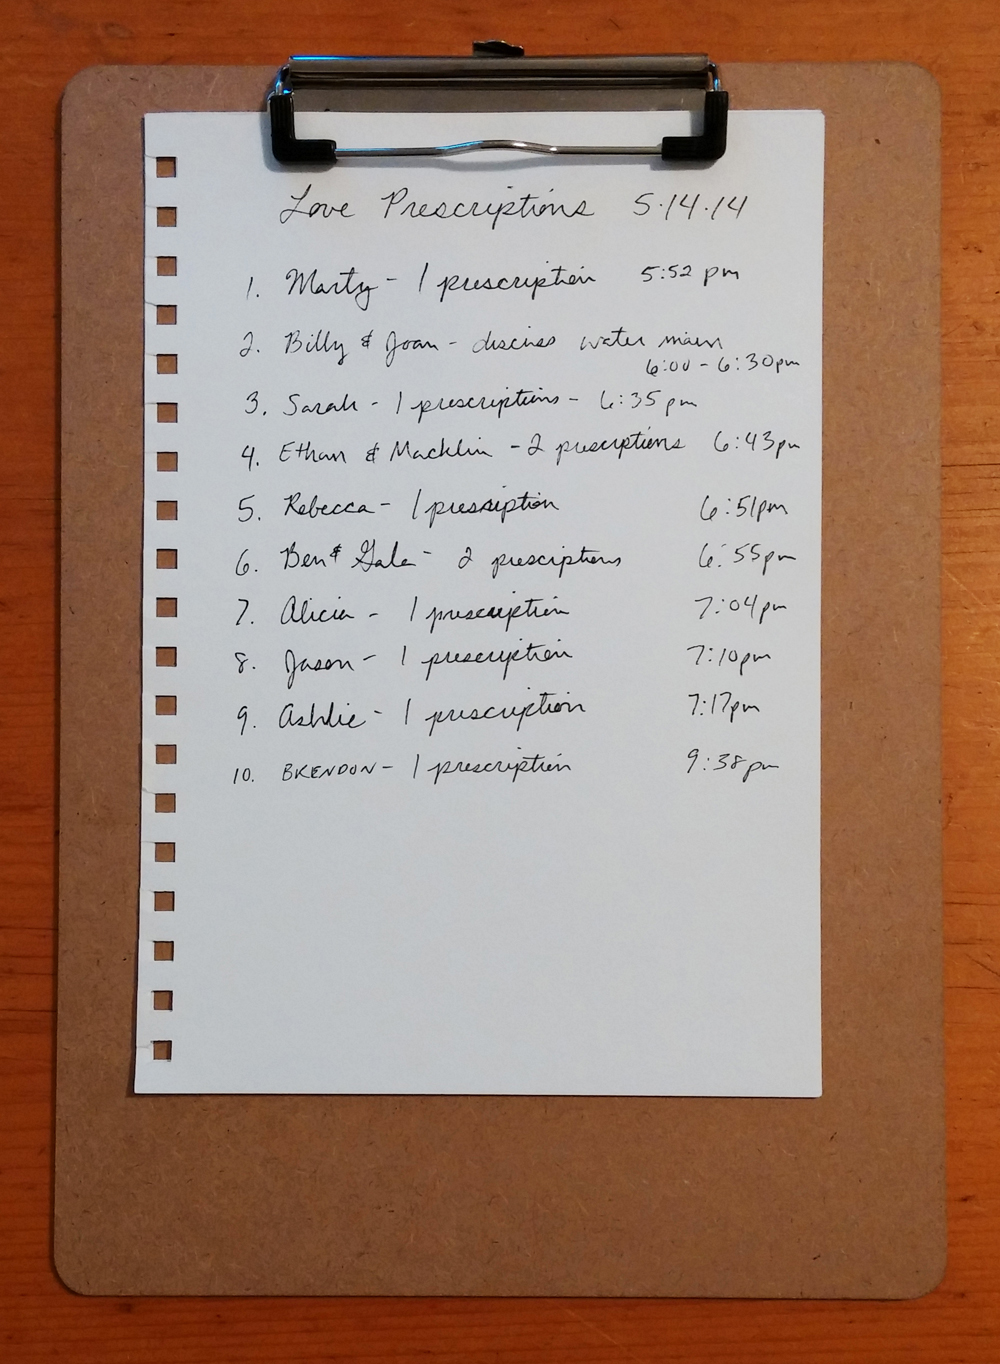 Love Prescriptions 5.14.14
1. Marty - 1 prescription 5:52 pm
2. Billy & Joan - discuss water main
6:00 - 6:30pm
3. Sarah - 1 prescriptions - 6:35 pm
4. Ethan & Macklin - 2 prescriptions 6:43pm
5. Rebecca - 1 prescription 6:51pm
6. Ben & Gale - 2 prescriptions 6:55pm
7. Alicia - 1 prescription 7:04pm
8. Jason - 1 prescription 7:10pm
9. Ashlie - 1 prescription 7:17pm
10. BRENDON - 1 prescription 9:38pm